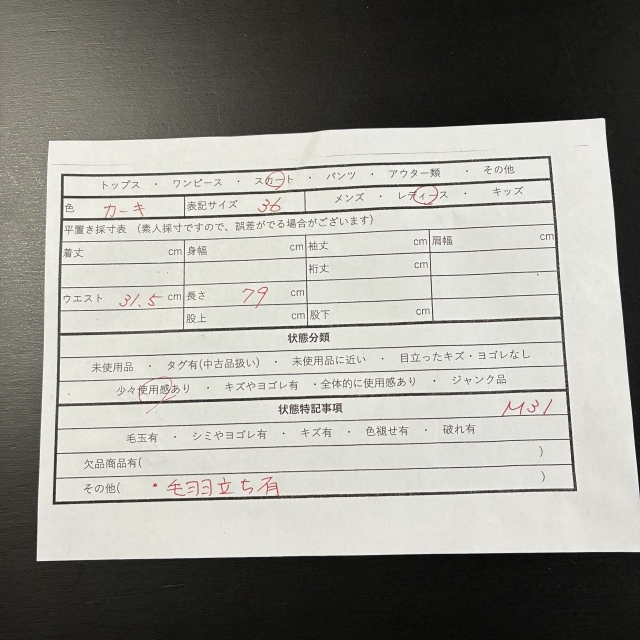 トップス ・ ワンピース ・ スカート ・ パンツ ・ アウター類 ・ その他
色 カーキ 表記サイズ 36 メンズ ・ レディース ・ キッズ
平置き採寸表 (素人採寸ですので、誤差がでる場合がございます)
着丈 cm 身幅 cm 袖丈 cm 肩幅 cm
裄丈 cm
ウエスト 31.5 cm 長さ 79 cm
股上 cm 股下 cm
状態分類
未使用品 ・ タグ有(中古品扱い) ・ 未使用品に近い ・ 目立ったキズ・ヨゴレなし
少々使用感あり ・ キズやヨゴレ有 ・全体的に使用感あり ・ ジャンク品
状態特記事項 M31
毛玉有 ・ シミやヨゴレ有 ・ キズ有 ・ 色褪せ有 ・ 破れ有
欠品商品有( )
その他( ・毛羽立ち有 )